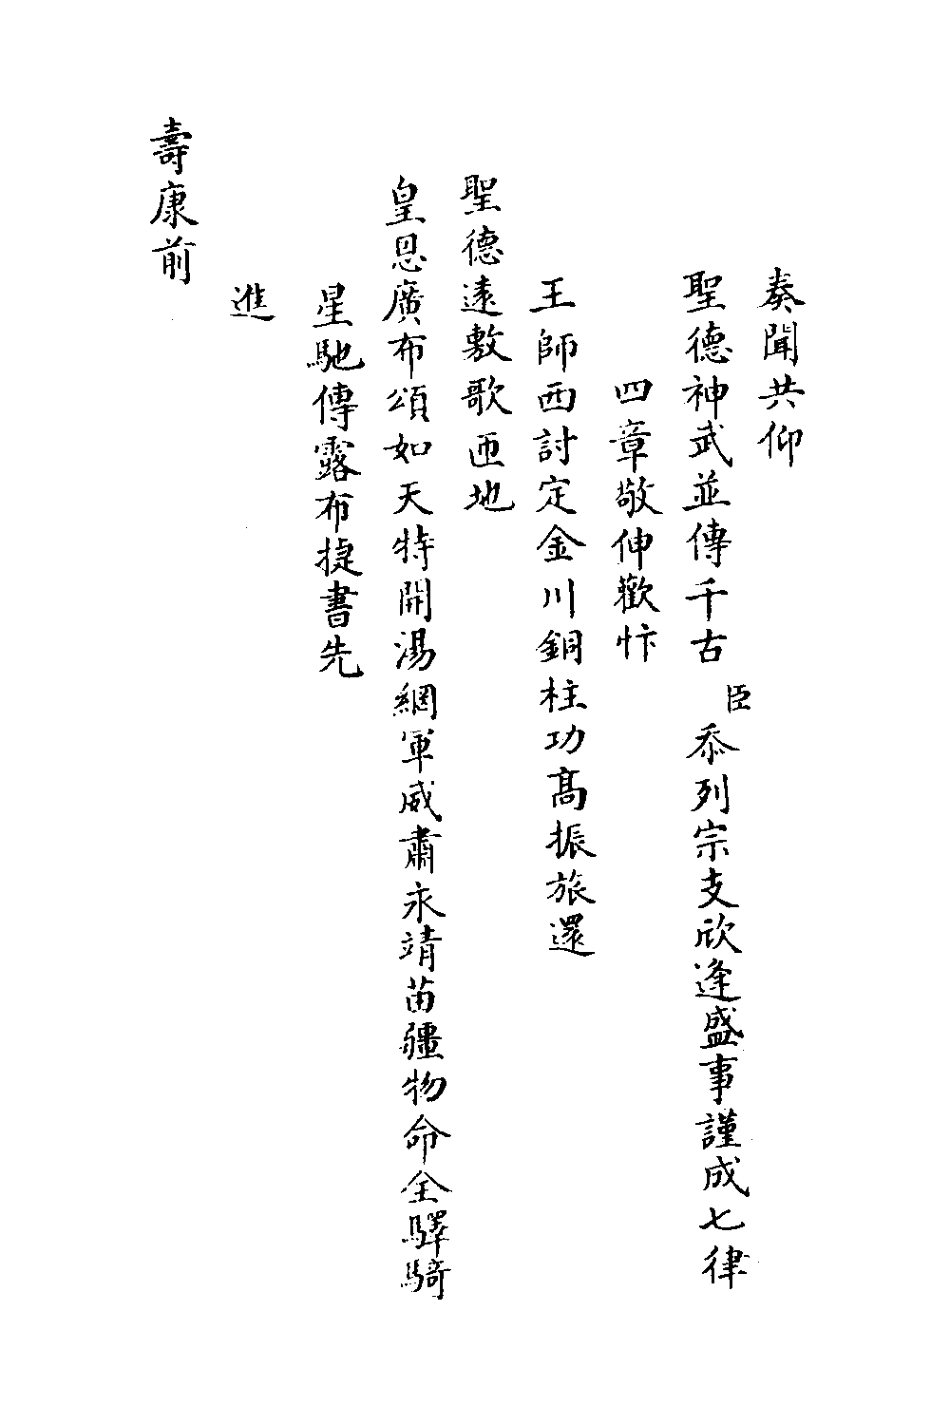 奏聞共仰
聖德神武並傳千古臣忝列宗支欣逢盛事謹成七律
四章敬伸歡忭
王師西討定金川銅柱功高振旅還
聖德遠敷歌匝地
皇恩廣布頌如天特開湯網軍威肅永靖苗疆物命全驛騎
星馳傳露布捷書先
進
壽康前